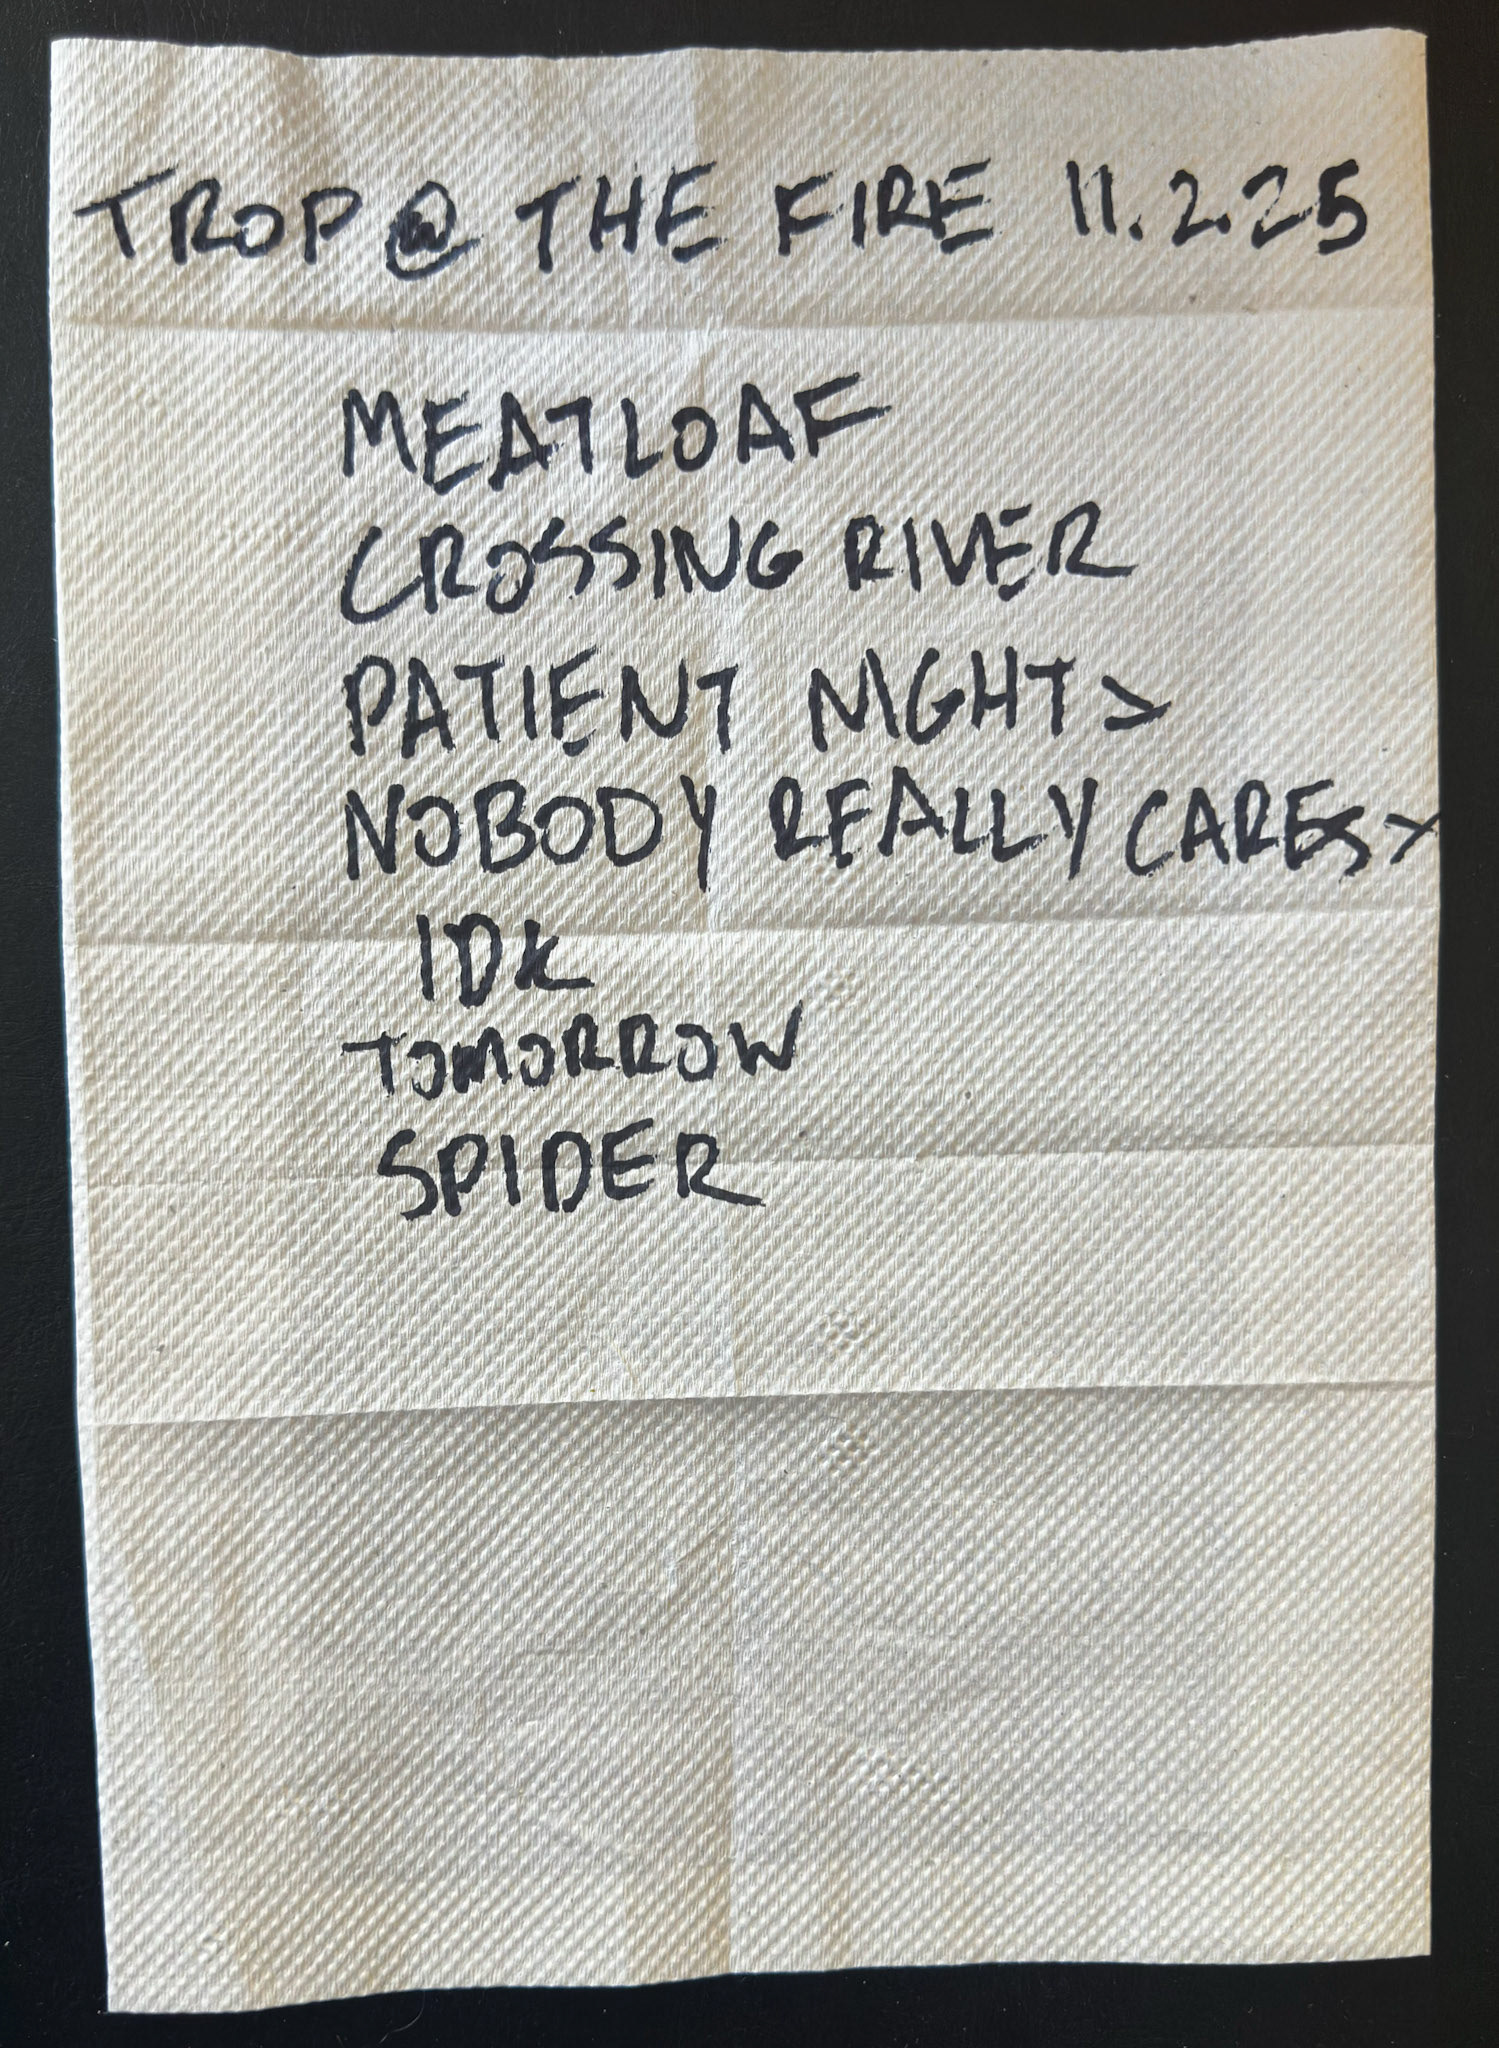 TROP @ THE FIRE 11.2.25
MEATLOAF
CROSSING RIVER
PATIENT NIGHT >
NOBODY REALLY CARES >
IDK
TOMORROW
SPIDER